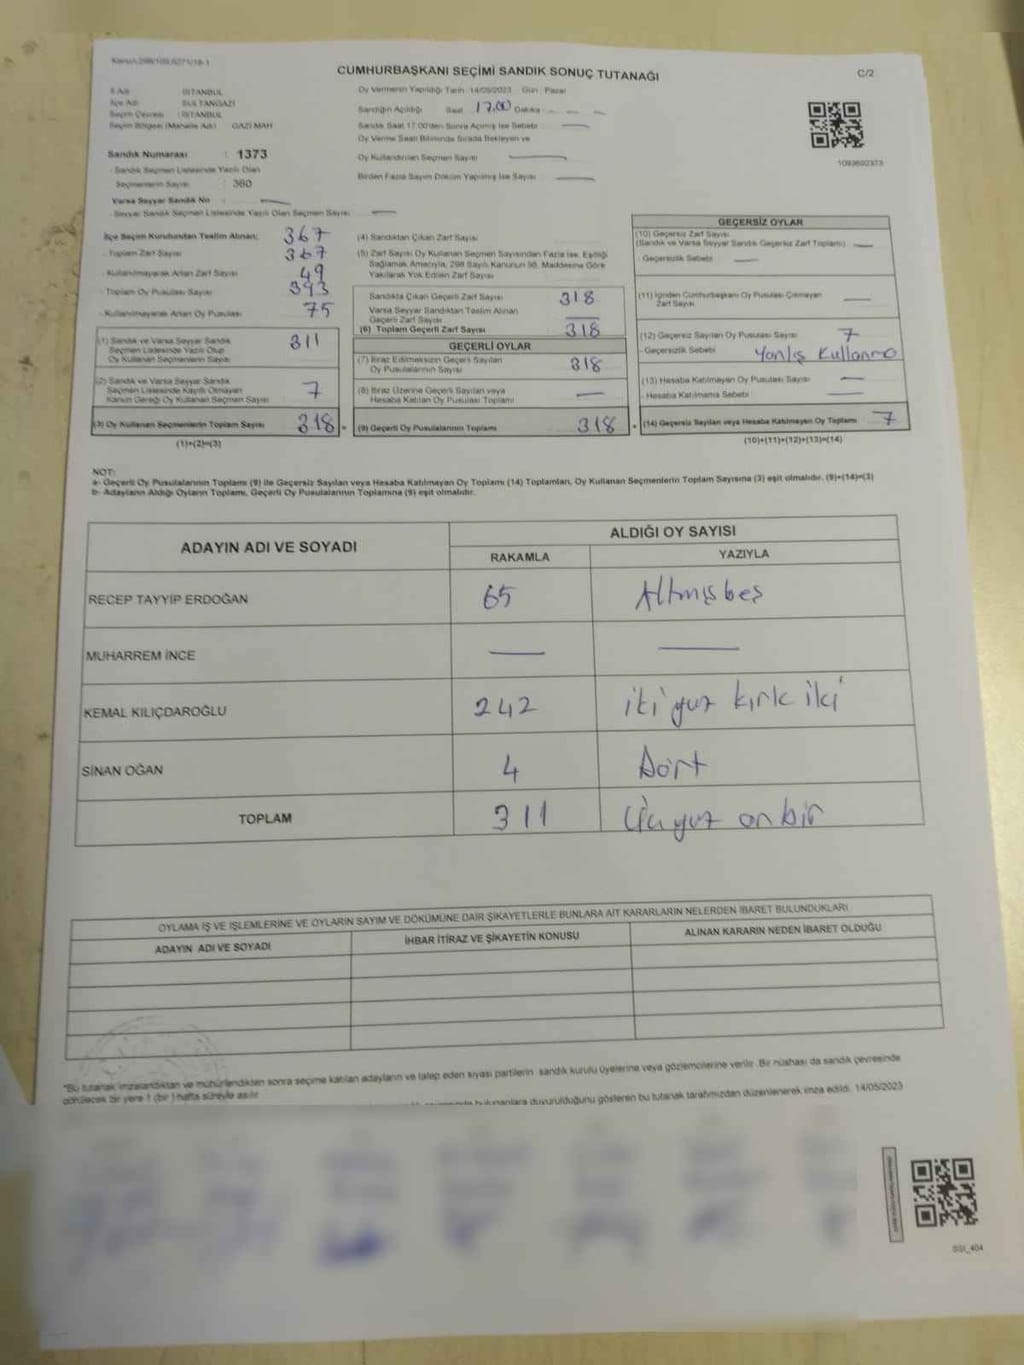 Kanun:298/105,6271/18-1
CUMHURBAŞKANI SEÇİMİ SANDIK SONUÇ TUTANAĞI
C/2
İl Adı : İSTANBUL
İlçe Adı : SULTANGAZİ
Seçim Çevresi : İSTANBUL
Seçim Bölgesi (Mahalle Adı) : GAZİ MAH
Sandık Numarası : 1373
- Sandık Seçmen Listesinde Yazılı Olan
Seçmenlerin Sayısı : 360
Varsa Seyyar Sandık No :
- Seyyar Sandık Seçmen Listesinde Yazılı Olan Seçmen Sayısı
Oy Vermenin Yapıldığı Tarih: 14/05/2023 Gün : Pazar
Sandığın Açıldığı Saat 17.00 Dakika :
Sandık Saat 17:00'den Sonra Açılmış İse Sebebi
Oy Verme Saati Bitiminde Sırada Bekleyen ve
Oy Kullandırılan Seçmen Sayısı
Birden Fazla Sayım Döküm Yapılmış İse Sayısı
1093692373
İlçe Seçim Kurulundan Teslim Alınan; 367
- Toplam Zarf Sayısı 367
- Kullanılmayarak Artan Zarf Sayısı 49
- Toplam Oy Pusulası Sayısı 393
- Kullanılmayarak Artan Oy Pusulası 75
(1) Sandık ve Varsa Seyyar Sandık
Seçmen Listesinde Yazılı Olup
Oy Kullanan Seçmenlerin Sayısı 311
(2) Sandık ve Varsa Seyyar Sandık
Seçmen Listesinde Kayıtlı Olmayan
Kanun Gereği Oy Kullanan Seçmen Sayısı 7
(3) Oy Kullanan Seçmenlerin Toplam Sayısı 318 =
(1)+(2)=(3)
(4) Sandıktan Çıkan Zarf Sayısı
(5) Zarf Sayısı Oy Kullanan Seçmen Sayısından Fazla İse, Eşitliği
Sağlamak Amacıyla, 298 Sayılı Kanunun 98. Maddesine Göre
Yakılarak Yok Edilen Zarf Sayısı
Sandıkta Çıkan Geçerli Zarf Sayısı 318
Varsa Seyyar Sandıktan Teslim Alınan
Geçerli Zarf Sayısı
(6) Toplam Geçerli Zarf Sayısı 318
GEÇERLİ OYLAR
(7) İtiraz Edilmeksizin Geçerli Sayılan
Oy Pusulalarının Sayısı 318
(8) İtiraz Üzerine Geçerli Sayılan veya
Hesaba Katılan Oy Pusulası Toplamı
(9) Geçerli Oy Pusulalarının Toplamı 318 +
GEÇERSİZ OYLAR
(10) Geçersiz Zarf Sayısı
(Sandık ve Varsa Seyyar Sandık Geçersiz Zarf Toplamı)
- Geçersizlik Sebebi
(11) İçinden Cumhurbaşkanı Oy Pusulası Çıkmayan
Zarf Sayısı
(12) Geçersiz Sayılan Oy Pusulası Sayısı 7
- Geçersizlik Sebebi Yanlış Kullanma
(13) Hesaba Katılmayan Oy Pusulası Sayısı
- Hesaba Katılmama Sebebi
(14) Geçersiz Sayılan veya Hesaba Katılmayan Oy Toplamı 7
(10)+(11)+(12)+(13)=(14)
NOT:
a- Geçerli Oy Pusulalarının Toplamı (9) ile Geçersiz Sayılan veya Hesaba Katılmayan Oy Toplamı (14) Toplamları, Oy Kullanan Seçmenlerin Toplam Sayısına (3) eşit olmalıdır. (9)+(14)=(3)
b- Adayların Aldığı Oyların Toplamı, Geçerli Oy Pusulalarının Toplamına (9) eşit olmalıdır.
ADAYIN ADI VE SOYADI
ALDIĞI OY SAYISI
RAKAMLA YAZIYLA
RECEP TAYYİP ERDOĞAN 65 Altmışbeş
MUHARREM İNCE
KEMAL KILIÇDAROĞLU 242 iki yüz kırk iki
SİNAN OĞAN 4 Dört
TOPLAM 311 Üçyüz onbir
OYLAMA İŞ VE İŞLEMLERİNE VE OYLARIN SAYIM VE DÖKÜMÜNE DAİR ŞİKAYETLERLE BUNLARA AİT KARARLARIN NELERDEN İBARET BULUNDUKLARI
ADAYIN ADI VE SOYADI İHBAR İTİRAZ VE ŞİKAYETİN KONUSU ALINAN KARARIN NEDEN İBARET OLDUĞU
"Bu tutanak imzalandıktan ve mühürlendikten sonra seçime katılan adayların ve talep eden siyasi partilerin sandık kurulu üyelerine veya gözlemcilerine verilir. Bir nüshası da sandık çevresinde
görülecek bir yere 1 (bir ) hafta süreyle asılır.
bulunanlara duyurulduğunu gösteren bu tutanak tarafımızdan düzenlenerek imza edildi. 14/05/2023
SSI_404